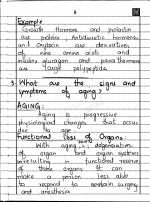 Example
Growth Hormone and prolactin
are proteins, Antidiuretic hormone,
and Oxytocin are derivatives
of nine amino acids and
insulin, glucagon and parathormone
are large polypeptide.
3. What are the signs and
symptoms of aging?
AGING:
Aging is progressive
physiological changes that occur
due to age.
Functional Loss of Organs:
With aging,
of organ and organ systems
resulting in functional reserve
of these organs. It can
make a person less able
to respond to certain surgery
and anesthesia